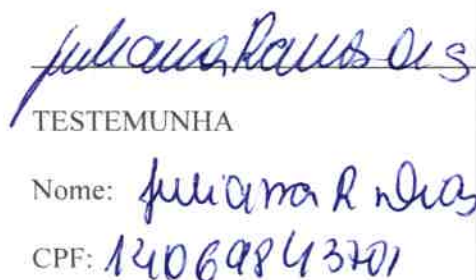 Juliana Ramos Dias
TESTEMUNHA
Nome: Juliana R Dias
CPF: